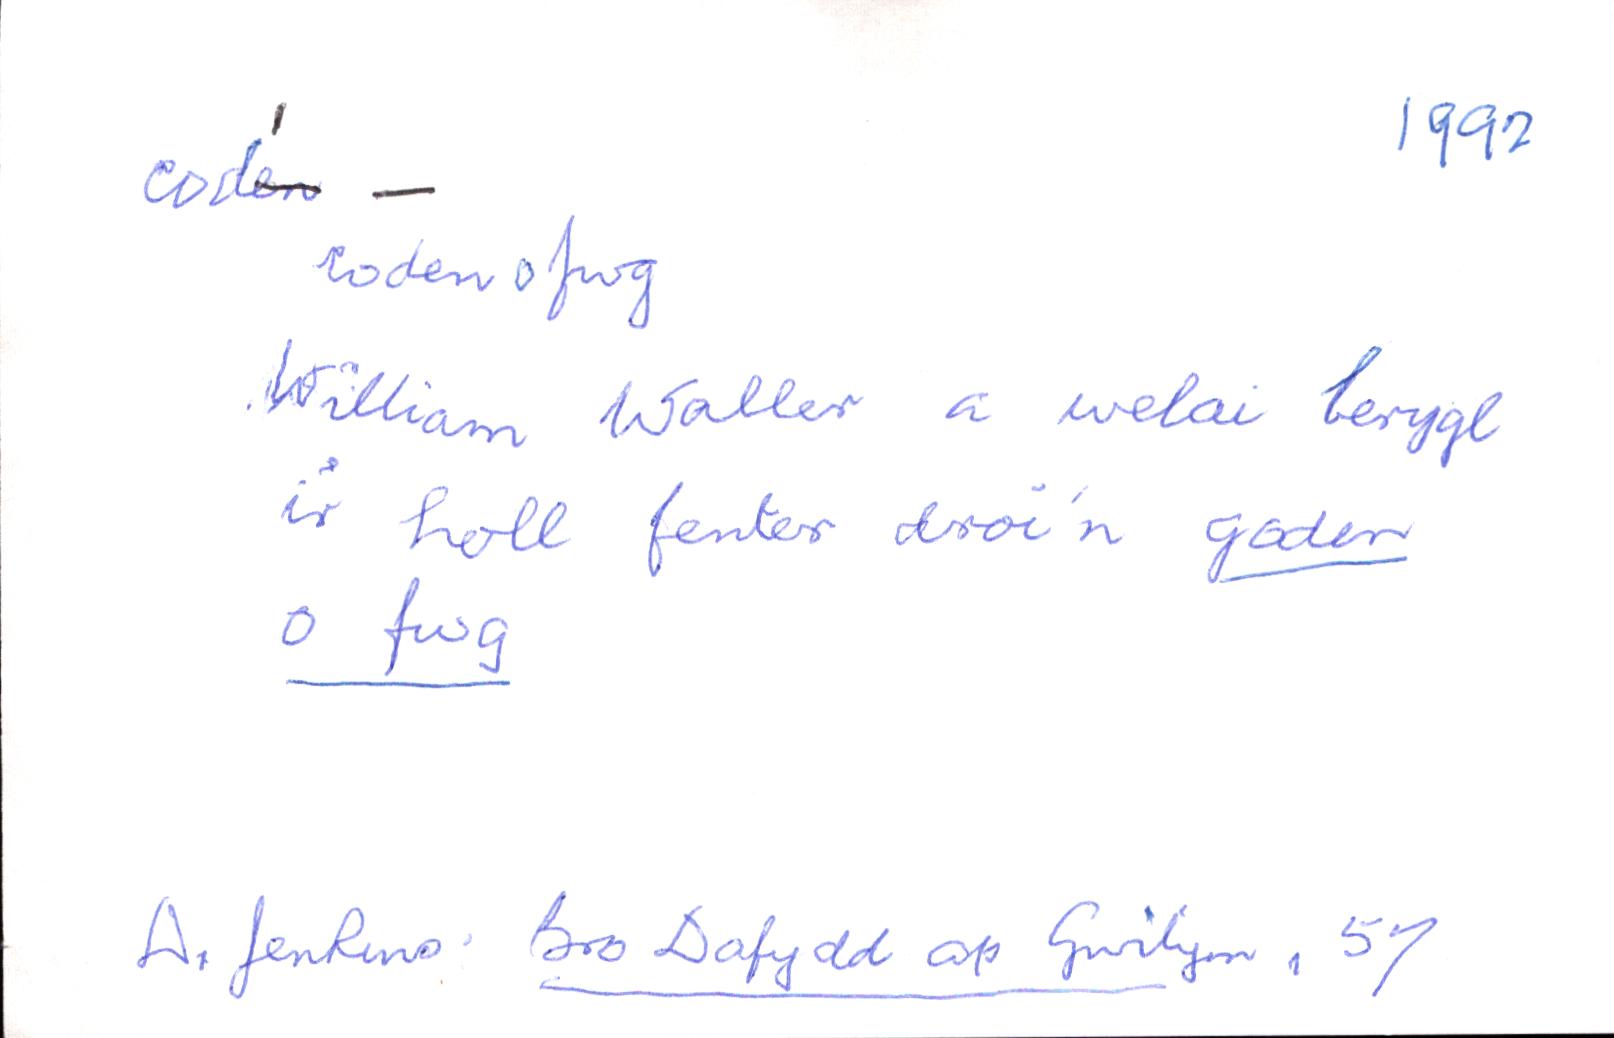 1992
coden —
coden o fwg
William Waller a welai berygl
i'r holl fenter droi'n goden
o fwg
D. Jenkins: Bro Dafydd ap Gwilym, 57